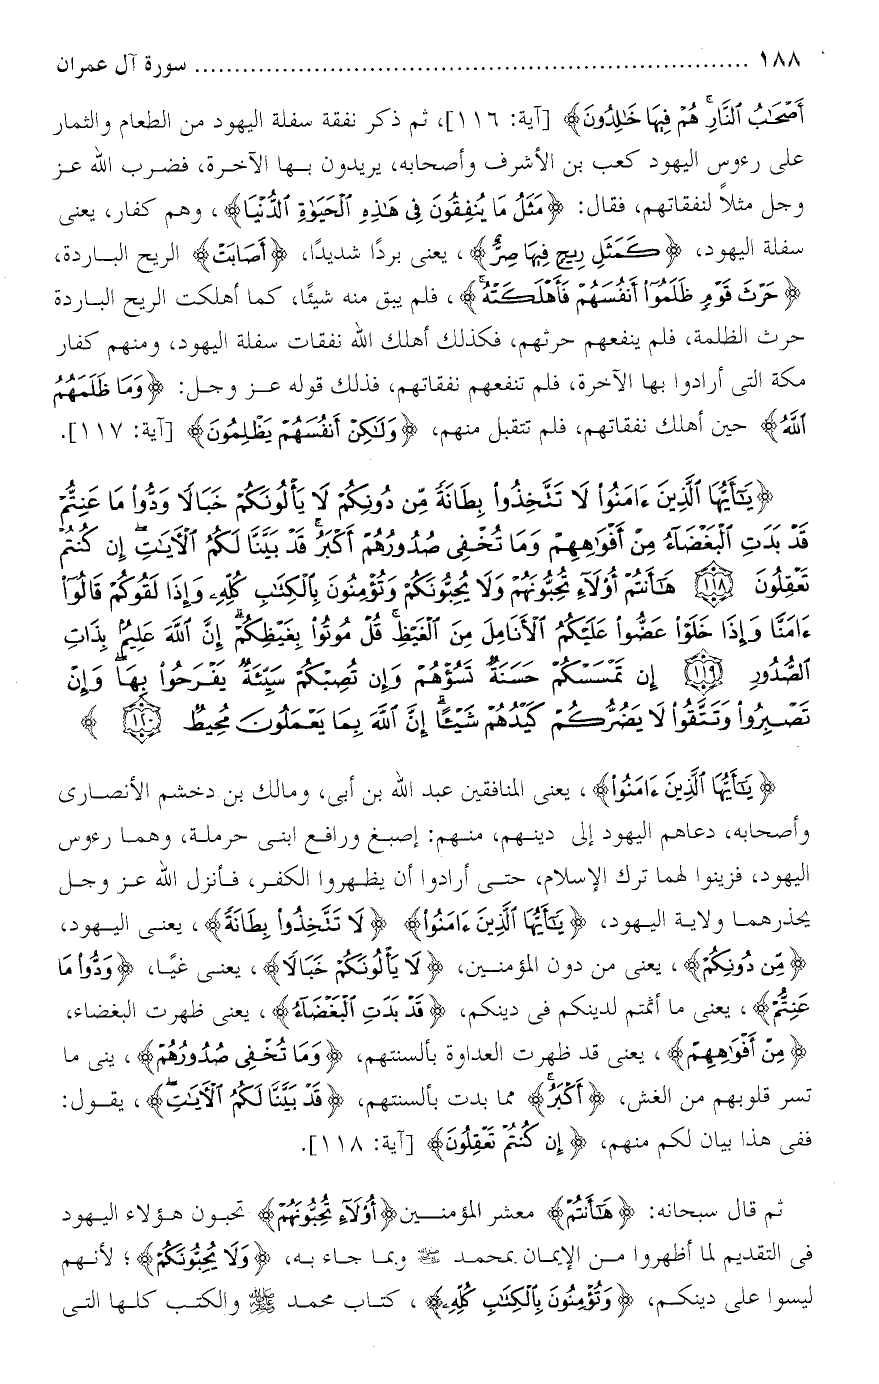 ١٨٨ ........................................................................ سورة آل عمران
أَصْحَابُ النَّارِ هُمْ فِيهَا خَالِدُونَ﴾ [آية: ١١٦]، ثم ذكر نفقة سفلة اليهود من الطعام والثمار
على رءوس اليهود كعب بن الأشرف وأصحابه، يريدون بها الآخرة، فضرب الله عز
وجل مثلاً لنفقاتهم، فقال: ﴿مَثَلُ مَا يُنفِقُونَ فِى هَٰذِهِ الْحَيَوٰةِ الدُّنْيَا﴾، وهم كفار، يعنى
سفلة اليهود، ﴿كَمَثَلِ رِيحٍ فِيهَا صِرٌّ﴾، يعنى بردًا شديدًا، ﴿أَصَابَتْ﴾ الريح الباردة،
﴿حَرْثَ قَوْمٍ ظَلَمُوٓا۟ أَنفُسَهُمْ فَأَهْلَكَتْهُ﴾، فلم يبق منه شيئًا، كما أهلكت الريح الباردة
حرث الظلمة، فلم ينفعهم حرثهم، فكذلك أهلك الله نفقات سفلة اليهود، ومنهم كفار
مكة التى أرادوا بها الآخرة، فلم تنفعهم نفقاتهم، فذلك قوله عز وجل: ﴿وَمَا ظَلَمَهُمُ
اللَّهُ﴾ حين أهلك نفقاتهم، فلم تتقبل منهم، ﴿وَلَٰكِنْ أَنفُسَهُمْ يَظْلِمُونَ﴾ [آية: ١١٧].
﴿يَٰٓأَيُّهَا الَّذِينَ ءَامَنُوا۟ لَا تَتَّخِذُوا۟ بِطَانَةً مِّن دُونِكُمْ لَا يَأْلُونَكُمْ خَبَالًا وَدُّوا۟ مَا عَنِتُّمْ
قَدْ بَدَتِ الْبَغْضَآءُ مِنْ أَفْوَٰهِهِمْ وَمَا تُخْفِى صُدُورُهُمْ أَكْبَرُ ۚ قَدْ بَيَّنَّا لَكُمُ الْءَايَٰتِ ۖ إِن كُنتُمْ
تَعْقِلُونَ ١١٨ هَٰٓأَنتُمْ أُو۟لَآءِ تُحِبُّونَهُمْ وَلَا يُحِبُّونَكُمْ وَتُؤْمِنُونَ بِالْكِتَٰبِ كُلِّهِۦ وَإِذَا لَقُوكُمْ قَالُوٓا۟
ءَامَنَّا وَإِذَا خَلَوْا۟ عَضُّوا۟ عَلَيْكُمُ الْأَنَامِلَ مِنَ الْغَيْظِ ۚ قُلْ مُوتُوا۟ بِغَيْظِكُمْ ۗ إِنَّ اللَّهَ عَلِيمٌۢ بِذَاتِ
الصُّدُورِ ١١٩ إِن تَمْسَسْكُمْ حَسَنَةٌ تَسُؤْهُمْ وَإِن تُصِبْكُمْ سَيِّئَةٌ يَفْرَحُوا۟ بِهَا ۖ وَإِن
تَصْبِرُوا۟ وَتَتَّقُوا۟ لَا يَضُرُّكُمْ كَيْدُهُمْ شَيْـًٔا ۗ إِنَّ اللَّهَ بِمَا يَعْمَلُونَ مُحِيطٌ ١٢٠﴾
﴿يَٰٓأَيُّهَا الَّذِينَ ءَامَنُوا۟﴾، يعنى المنافقين عبد الله بن أبى، ومالك بن دخشم الأنصارى
وأصحابه، دعاهم اليهود إلى دينهم، منهم: إصبغ ورافع ابنى حرملة، وهما رءوس
اليهود، فزينوا لهما ترك الإسلام، حتى أرادوا أن يظهروا الكفر، فأنزل الله عز وجل
يحذرهما ولاية اليهود، ﴿يَٰٓأَيُّهَا الَّذِينَ ءَامَنُوا۟﴾ ﴿لَا تَتَّخِذُوا۟ بِطَانَةً﴾، يعنى اليهود،
﴿مِّن دُونِكُمْ﴾، يعنى من دون المؤمنين، ﴿لَا يَأْلُونَكُمْ خَبَالًا﴾، يعنى غيًا، ﴿وَدُّوا۟ مَا
عَنِتُّمْ﴾، يعنى ما أثمتم لدينكم فى دينكم، ﴿قَدْ بَدَتِ الْبَغْضَآءُ﴾، يعنى ظهرت البغضاء،
﴿مِنْ أَفْوَٰهِهِمْ﴾، يعنى قد ظهرت العداوة بألسنتهم، ﴿وَمَا تُخْفِى صُدُورُهُمْ﴾، ينى ما
تسر قلوبهم من الغش، ﴿أَكْبَرُ ۚ﴾ مما بدت بألسنتهم، ﴿قَدْ بَيَّنَّا لَكُمُ الْءَايَٰتِ ۖ﴾، يقول:
ففى هذا بيان لكم منهم، ﴿إِن كُنتُمْ تَعْقِلُونَ﴾ [آية: ١١٨].
ثم قال سبحانه: ﴿هَٰٓأَنتُمْ﴾ معشر المؤمنين ﴿أُو۟لَآءِ تُحِبُّونَهُمْ﴾ تحبون هؤلاء اليهود
فى التقديم لما أظهروا من الإيمان بمحمد ﷺ وبما جاء به، ﴿وَلَا يُحِبُّونَكُمْ﴾؛ لأنهم
ليسوا على دينكم، ﴿وَتُؤْمِنُونَ بِالْكِتَٰبِ كُلِّهِۦ﴾، كتاب محمد ﷺ والكتب كلها التى